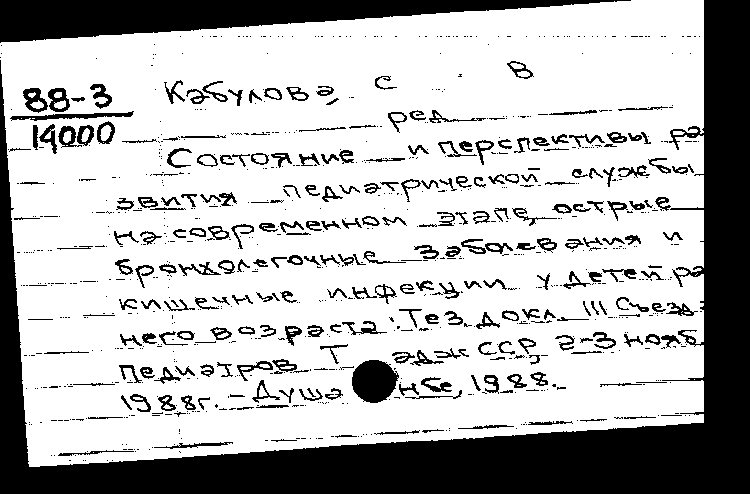 88-3
14000
Кабулова, С. В
ред.
Состояние и перспективы ра
звития педиатрической службы
на современном этапе, острые
бронхолегочные заболевания и
кишечные инфекции у детей ра
него возраста: Тез. докл. III Съезд
педиатров Тадж ССР, 2-3 нояб.
1988г. - Душанбе, 1988.